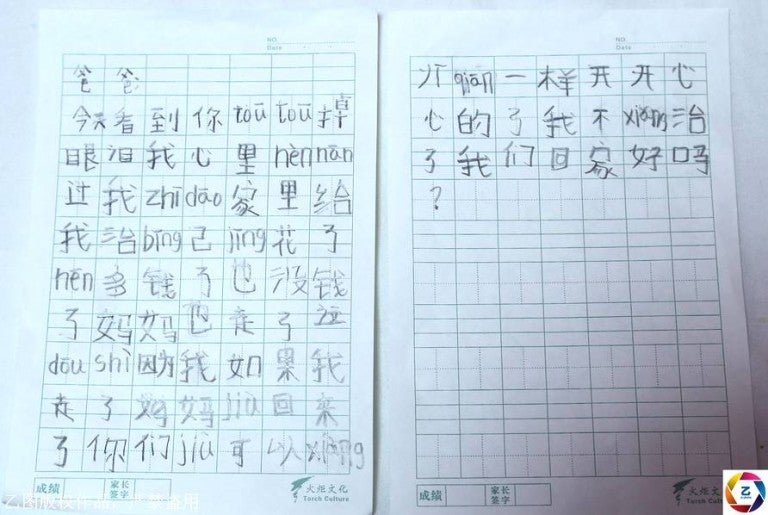 NO.
Date
爸爸
今天看到你toūtoū掉
眼泪我心里hènnān
过我zhīdāo家里给
我治bīng己jīng花了
hēn多钱了也没钱
了妈妈也走了这
dōushì因为我如果我
走了妈妈jiù回来
了你们jiù可以xiàng
成绩
家长
签字
火炬文化
Torch Culture
乙图
NO.
Date
qiān一样开开心
心的了我不xiǎng治
了我们回家好吗
?
成绩
家长
签字
火炬文
Torch Cultu
乙